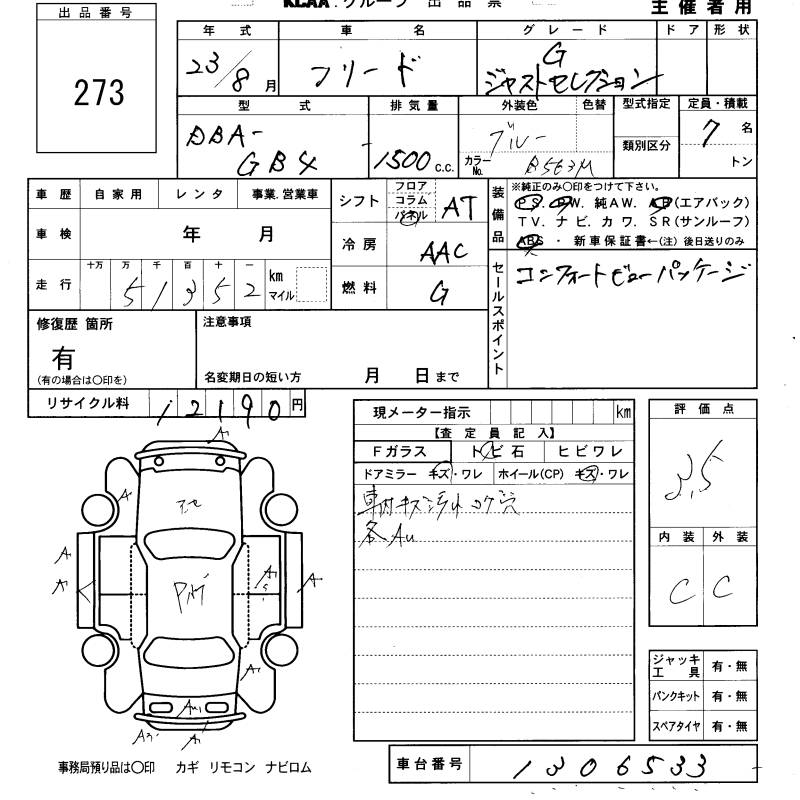 KCAA.グループ 出品票 主催者用
出品番号
273
年式 車名 グレード ドア 形状
23/8月 フリード G
ジャストセレクション
型式 排気量 外装色 色替 型式指定 定員・積載
DBA- 1500c.c. ブルー 類別区分 7名
GB4 カラーNo. B563M トン
車歴 自家用 レンタ 事業.営業車
車検 年 月
走行 十万 万 千 百 十 一 km マイル
51352
シフト フロア コラム パネル AT
冷房 AAC
燃料 G
装備品 ※純正のみ〇印をつけて下さい。
P S. P W. 純AW. AB(エアバック)
TV. ナビ. カワ. SR(サンルーフ)
ABS ・ 新車保証書←(注)後日送りのみ
セールスポイント コンフォートビューパッケージ
修復歴 箇所 注意事項
有
(有の場合は〇印を) 名変期日の短い方 月 日まで
リサイクル料 12190円
現メーター指示 km
【査定員記入】
Fガラス トビ石 ヒビワレ
ドアミラー キズ・ワレ ホイール(CP) キズ・ワレ
車内キズ シミ コゲ穴
各AU
評価点
3,5
内装 外装
C C
A
A
A
A
A
A
A
ジャッキ工具 有・無
パンクキット 有・無
スペアタイヤ 有・無
事務局預り品は〇印 カギ リモコン ナビロム
車台番号 1306533